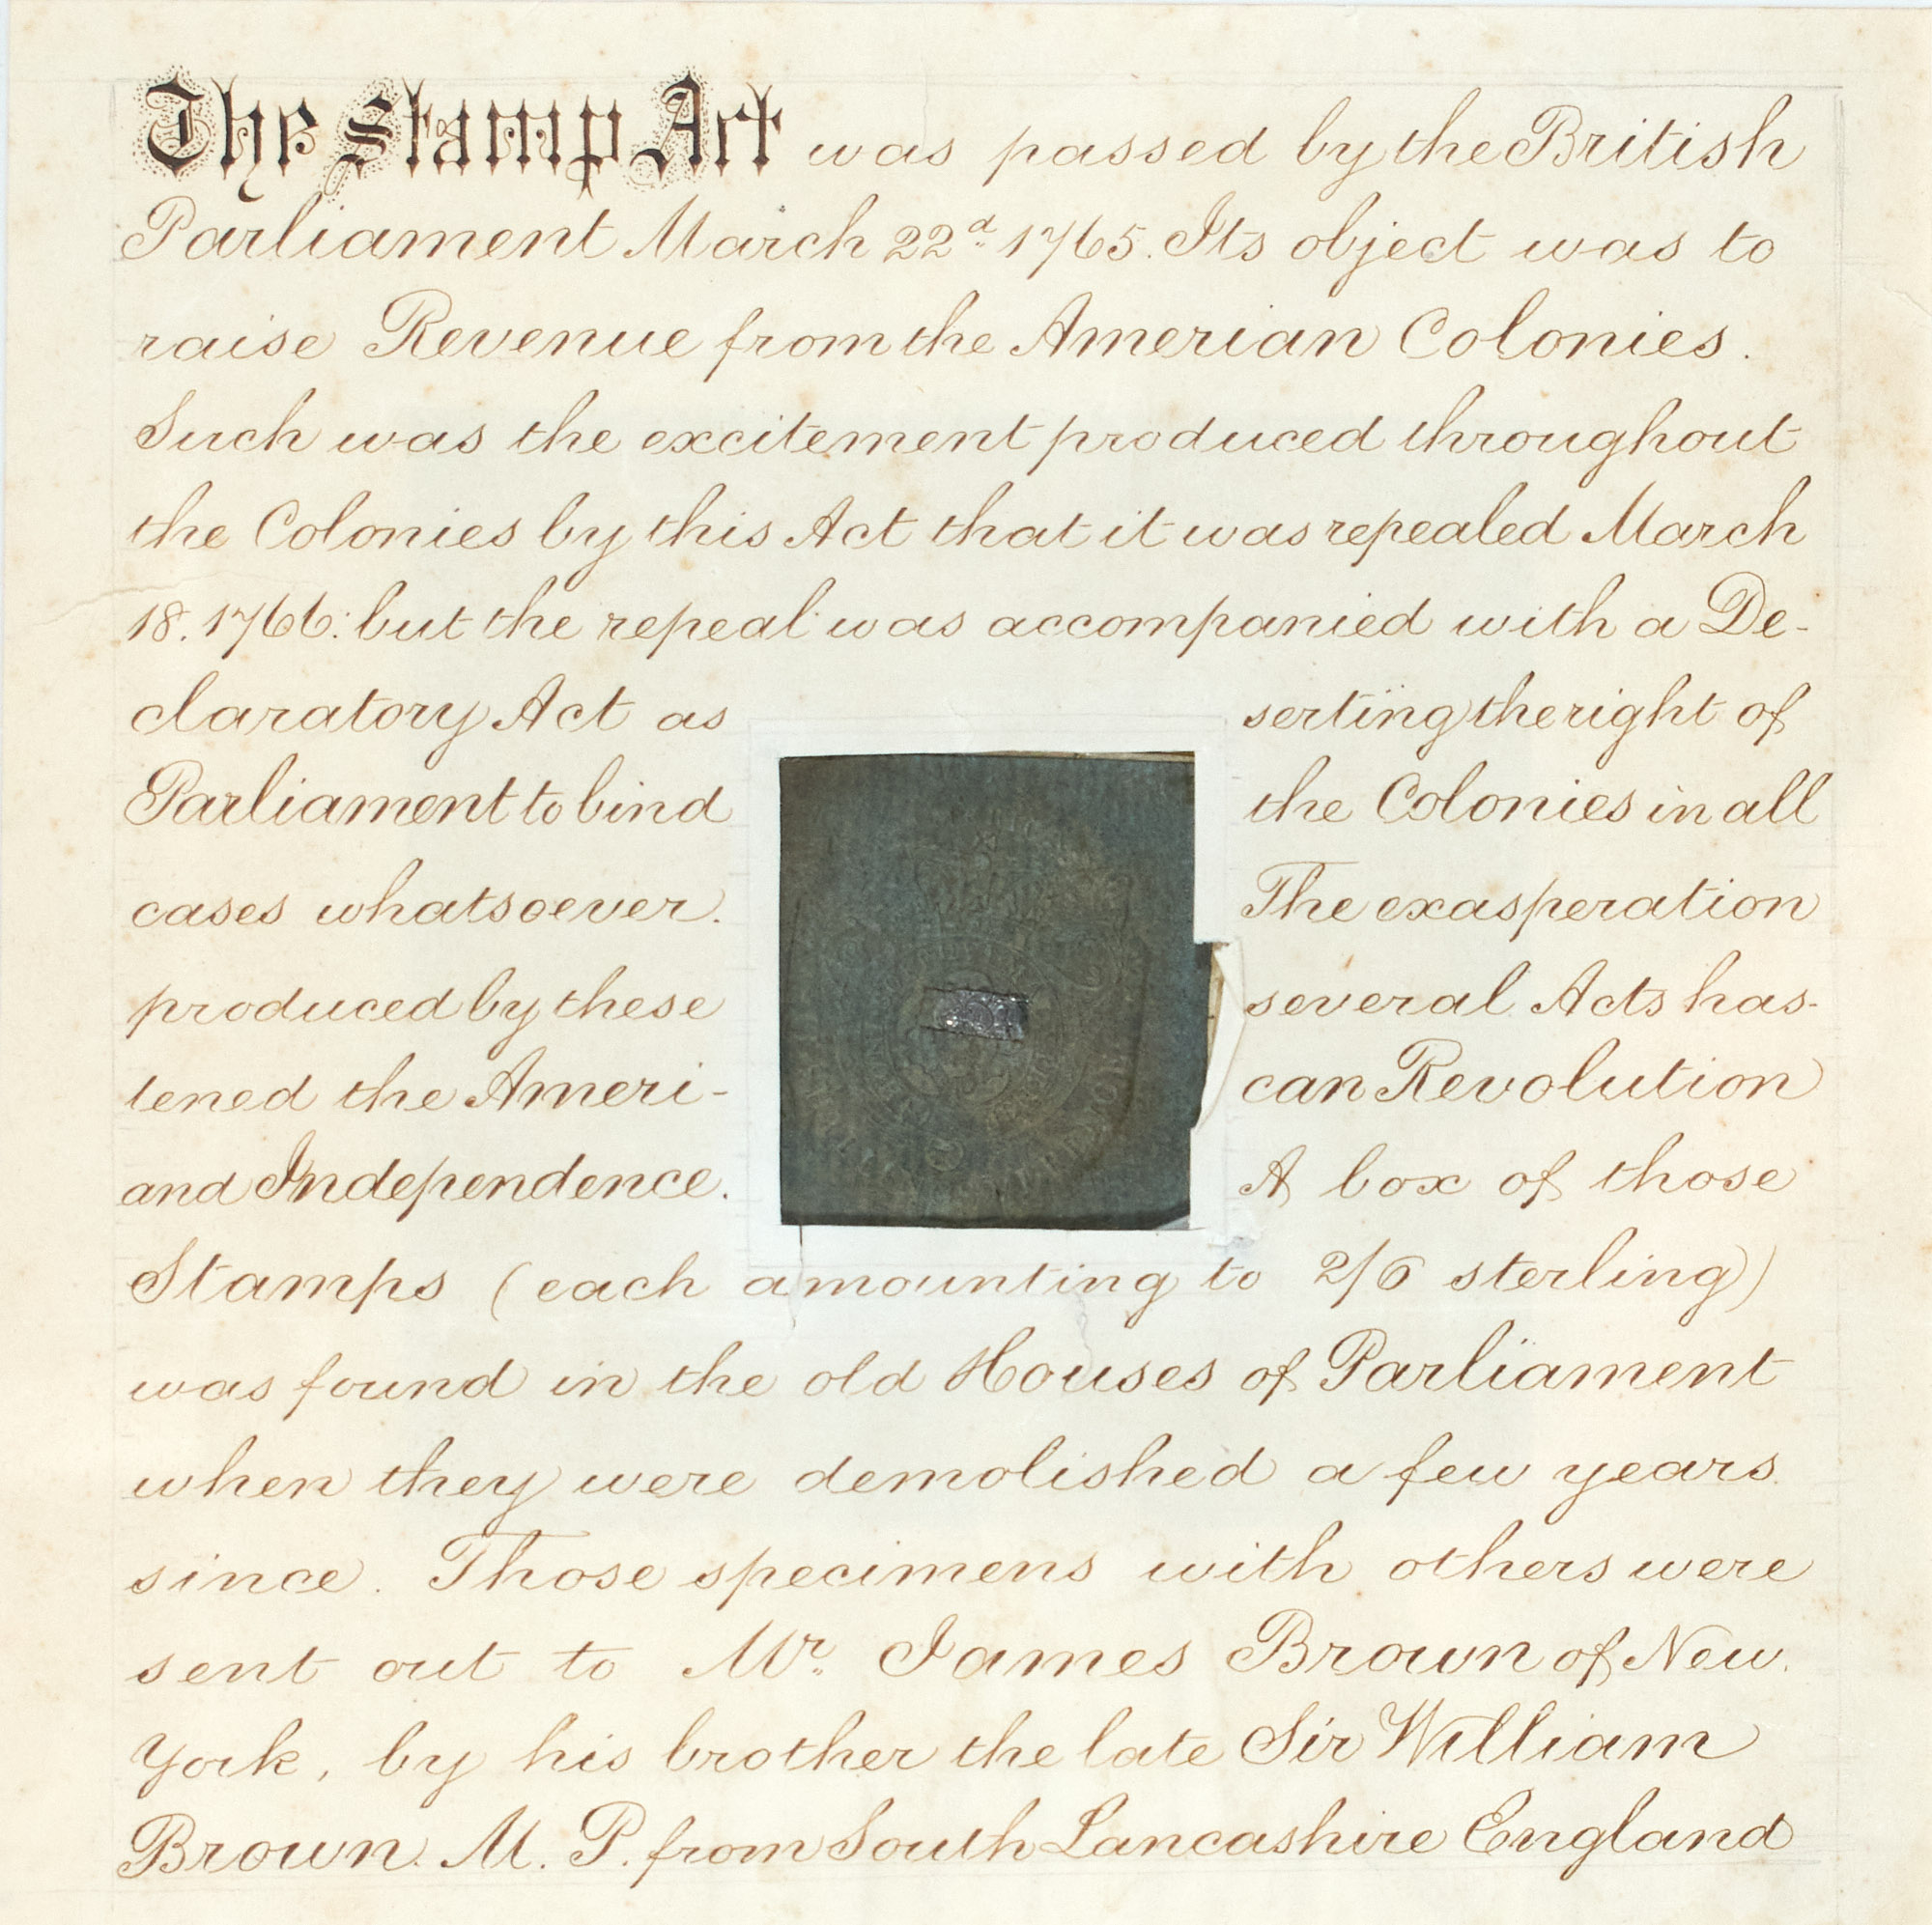 The Stamp Act was passed by the British
Parliament March 22d 1765. Its object was to
raise Revenue from the Amerian Colonies.
Such was the excitement produced throughout
the Colonies by this Act that it was repealed March
18. 1766: but the repeal was accompanied with a De-
claratory Act as serting the right of
Parliament to bind the Colonies in all
cases whatsoever. The exasperation
produced by these several Acts has-
tened the Ameri- can Revolution
and Independence. A box of those
Stamps (each amounting to 2/6 sterling)
was found in the old Houses of Parliament
when they were demolished a few years
since. Those specimens with others were
sent out to Mr. James Brown of New
York, by his brother the late Sir William
Brown. M. P. from South Lancashire England